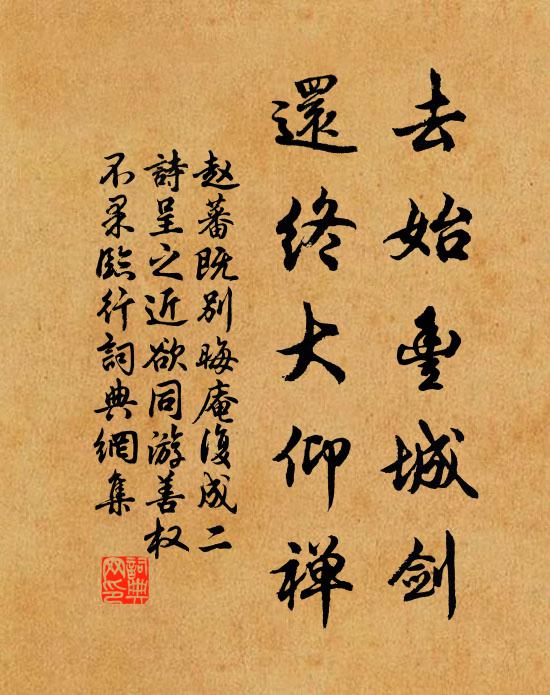 去始豐城劍
還終大仰禅
赵蕃既别晦庵復成二
詩呈之近欲同游善权
不果臨行詞典網集
詞典
网印